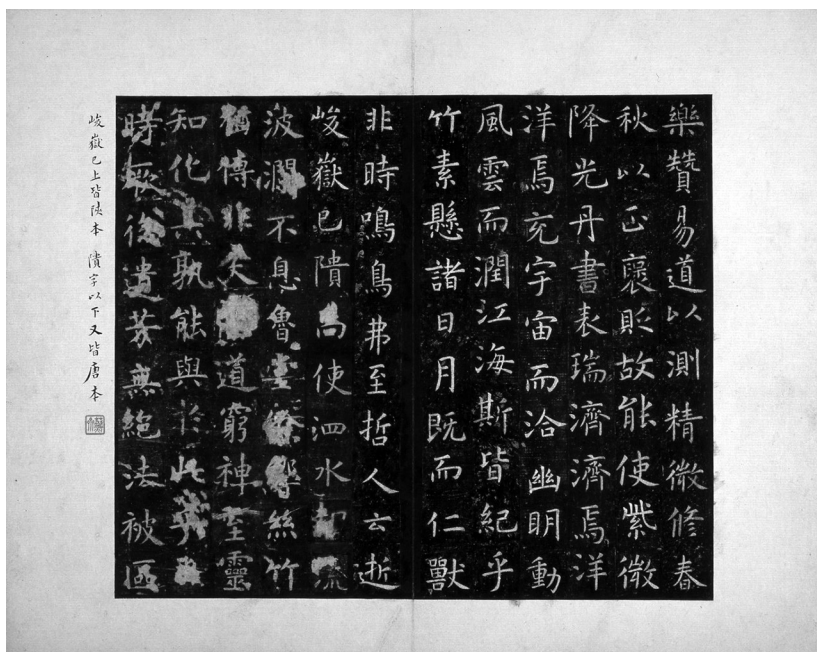 樂贊易道以測精微脩春
秋以正褒貶故能使紫微
降光丹書表瑞濟濟焉洋
洋焉充宇宙而洽幽眀動
風雲而潤江海斯皆紀乎
竹素懸諸日月既而仁獸
非時鳴鳥弗至哲人云逝
峻嶽已隤尚使泗水却流
波瀾不息魯堂餘響絲竹
猶傳非夫道窮神至靈
知化其孰能與於此乎
時厥後遺芳無絕法被區
峻嶽已上皆陝本 隤字以下又皆唐本